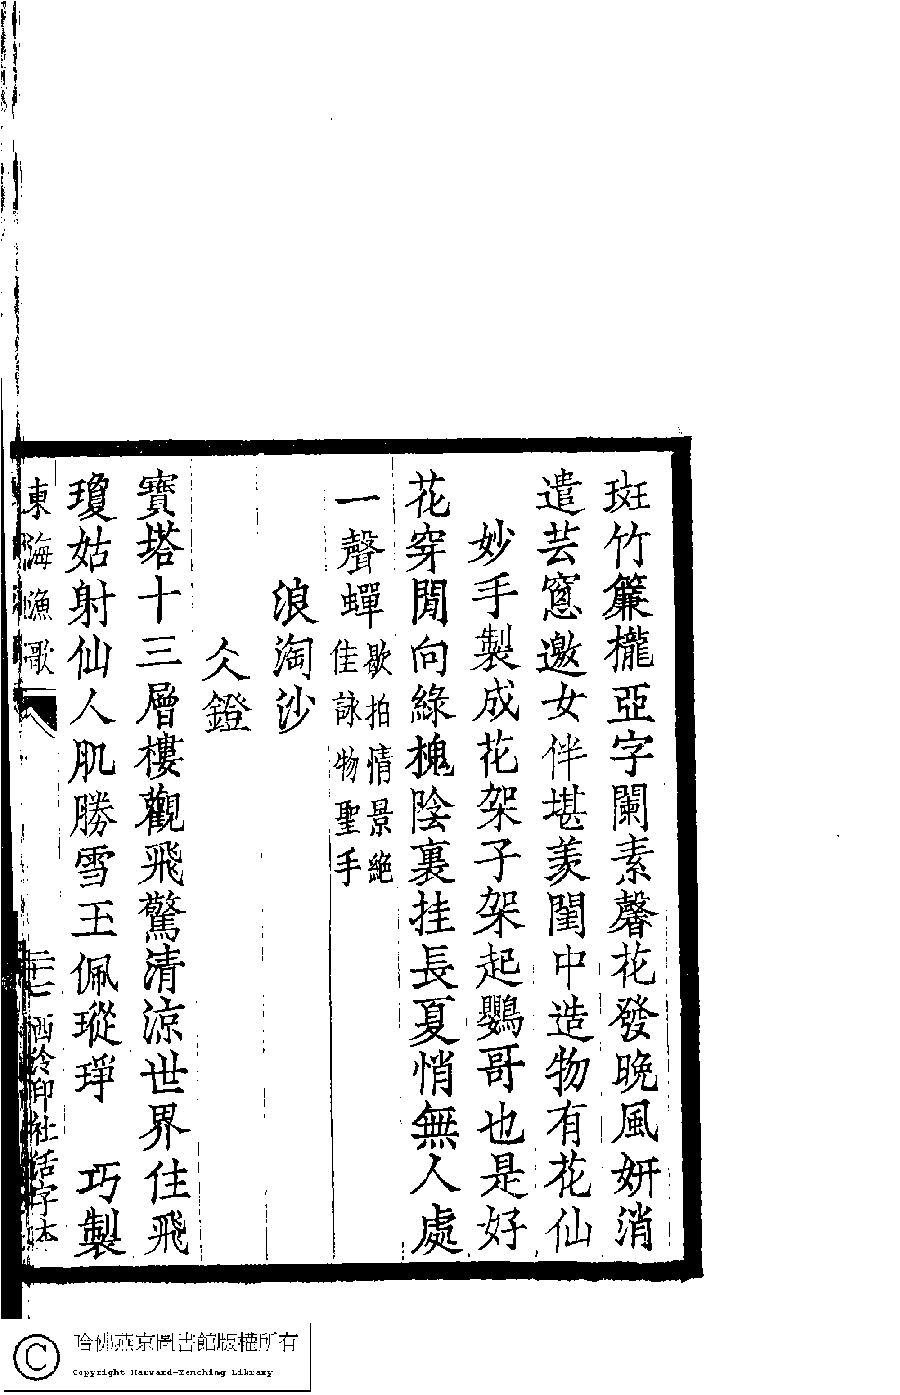 斑竹簾櫳亞字闌素馨花發晚風妍消
遣芸窻邀女伴堪羨閨中造物有花仙
妙手製成花架子架起鸚哥也是好
花穿閒向綠槐陰裏挂長夏悄無人處
一聲蟬歇拍情景絕
佳詠物聖手
浪淘沙
仌鐙
寶塔十三層樓觀飛驚清涼世界住飛
瓊姑射仙人肌勝雪王佩瑽琤 巧製
東海漁歌 二 廿七 西泠印社活字本
哈佛燕京圖書館版權所有
Copyright Harvard-Yenching Library